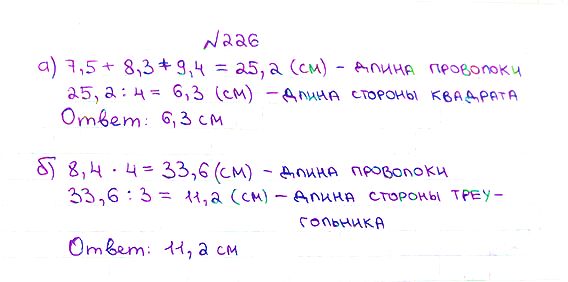 №226
а) 7,5 + 8,3 + 9,4 = 25,2 (см) – длина проволоки
25,2 : 4 = 6,3 (см) – длина стороны квадрата
Ответ: 6,3 см
б) 8,4 · 4 = 33,6 (см) – длина проволоки
33,6 : 3 = 11,2 (см) – длина стороны треу-
гольника
Ответ: 11,2 см